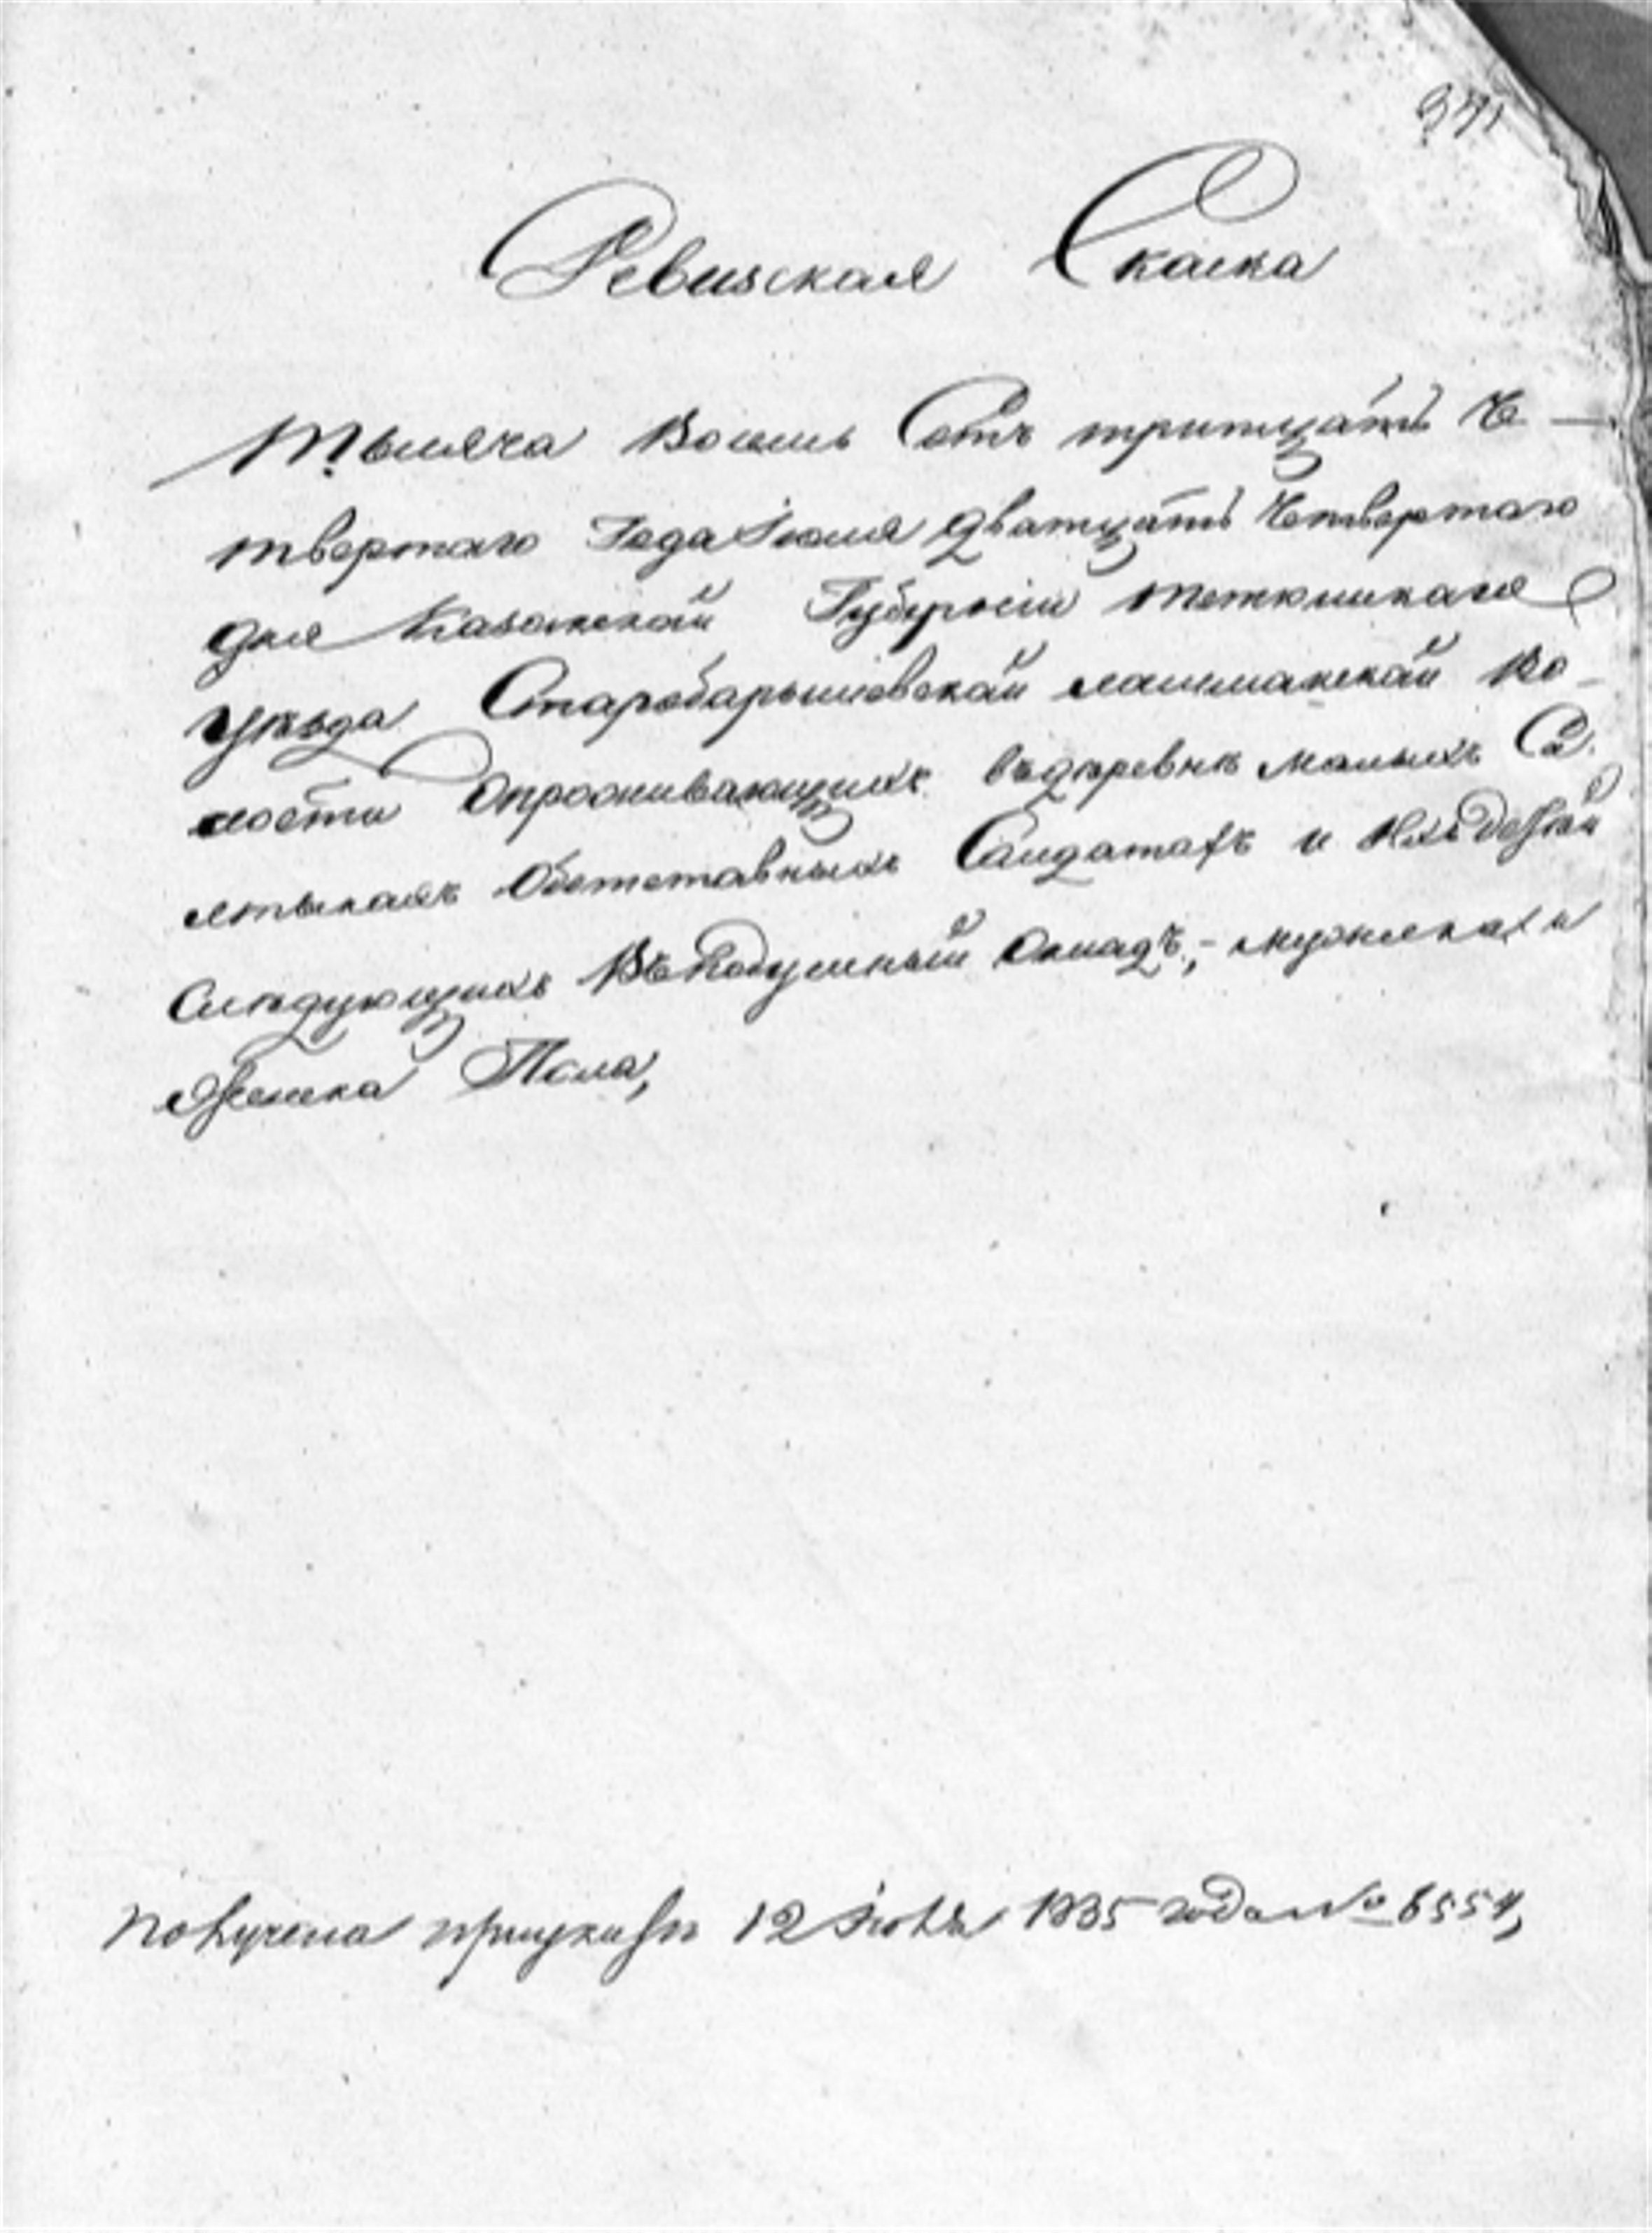 Ревизская Скаска
Тысяча Восемь Сотъ тритцать Че-
твертаго Года Июля дватцать Четвертаго
дня Казанской Губернии тетюшкаго
уезда Старобарышевской лашманской Во-
лости Опроживающихъ въдеревне малыхъ Са
лтыкахъ Обетставныхъ Салдатахъ и Ихъ детей
Следующихъ Въ Подушный Окладъ, - мужеска и
Женска Пола,
Получена 12 Июля 1835 года № 6554,